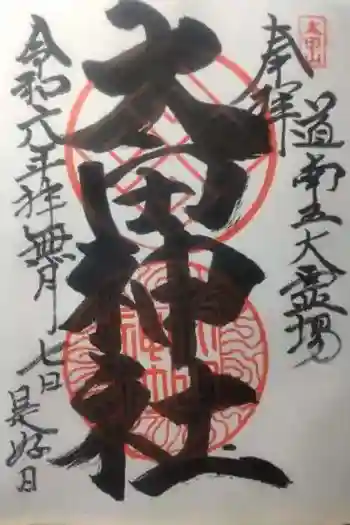 太田山
奉拝
道南五大霊場
太田神社
令和六年神無月七日是好日